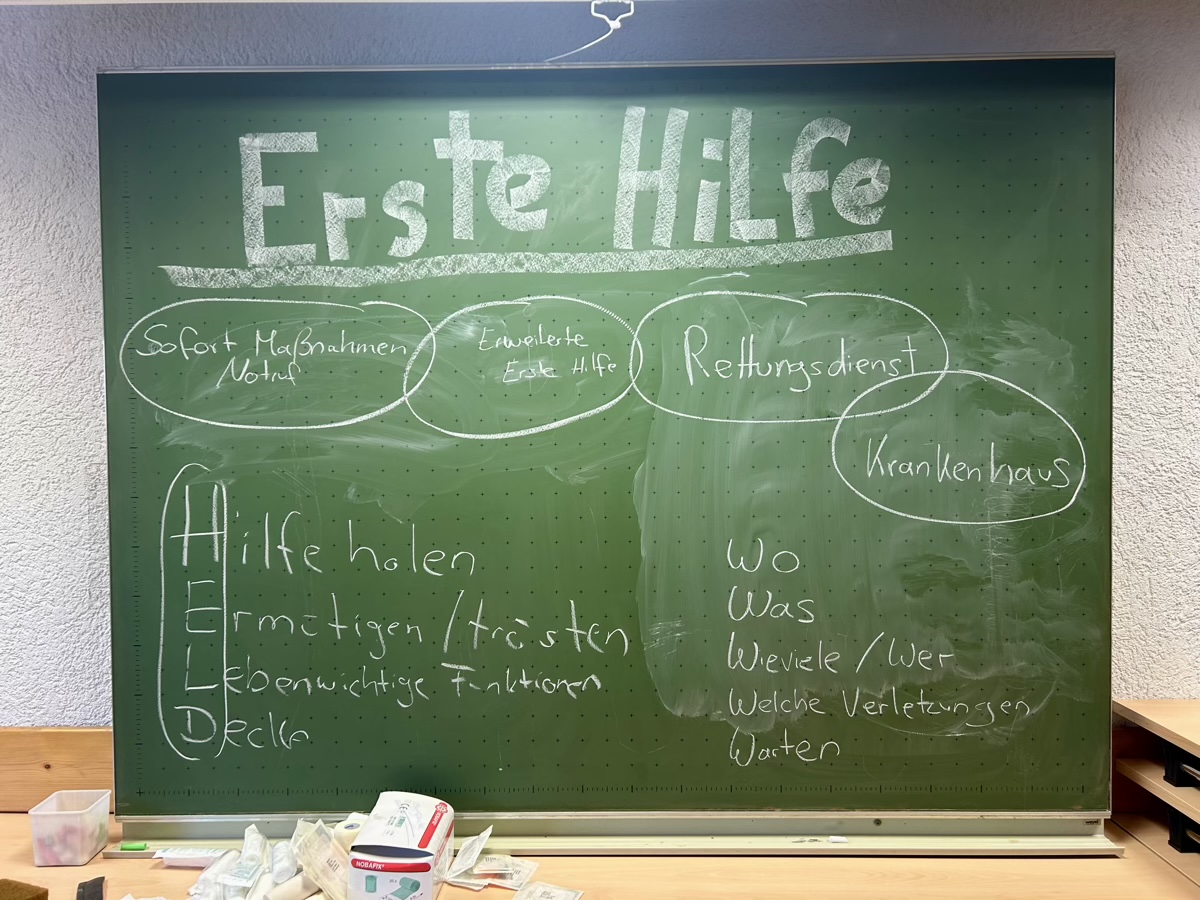 Erste Hilfe
Sofort Maßnahmen
Notruf
Erweiterte
Erste Hilfe
Rettungsdienst
Krankenhaus
Hilfe holen
Ermutigen / trösten
Lebenwichtige Funktionen
Decke
Wo
Was
Wieviele / Wer
Welche Verletzungen
Warten
NOBAFIX